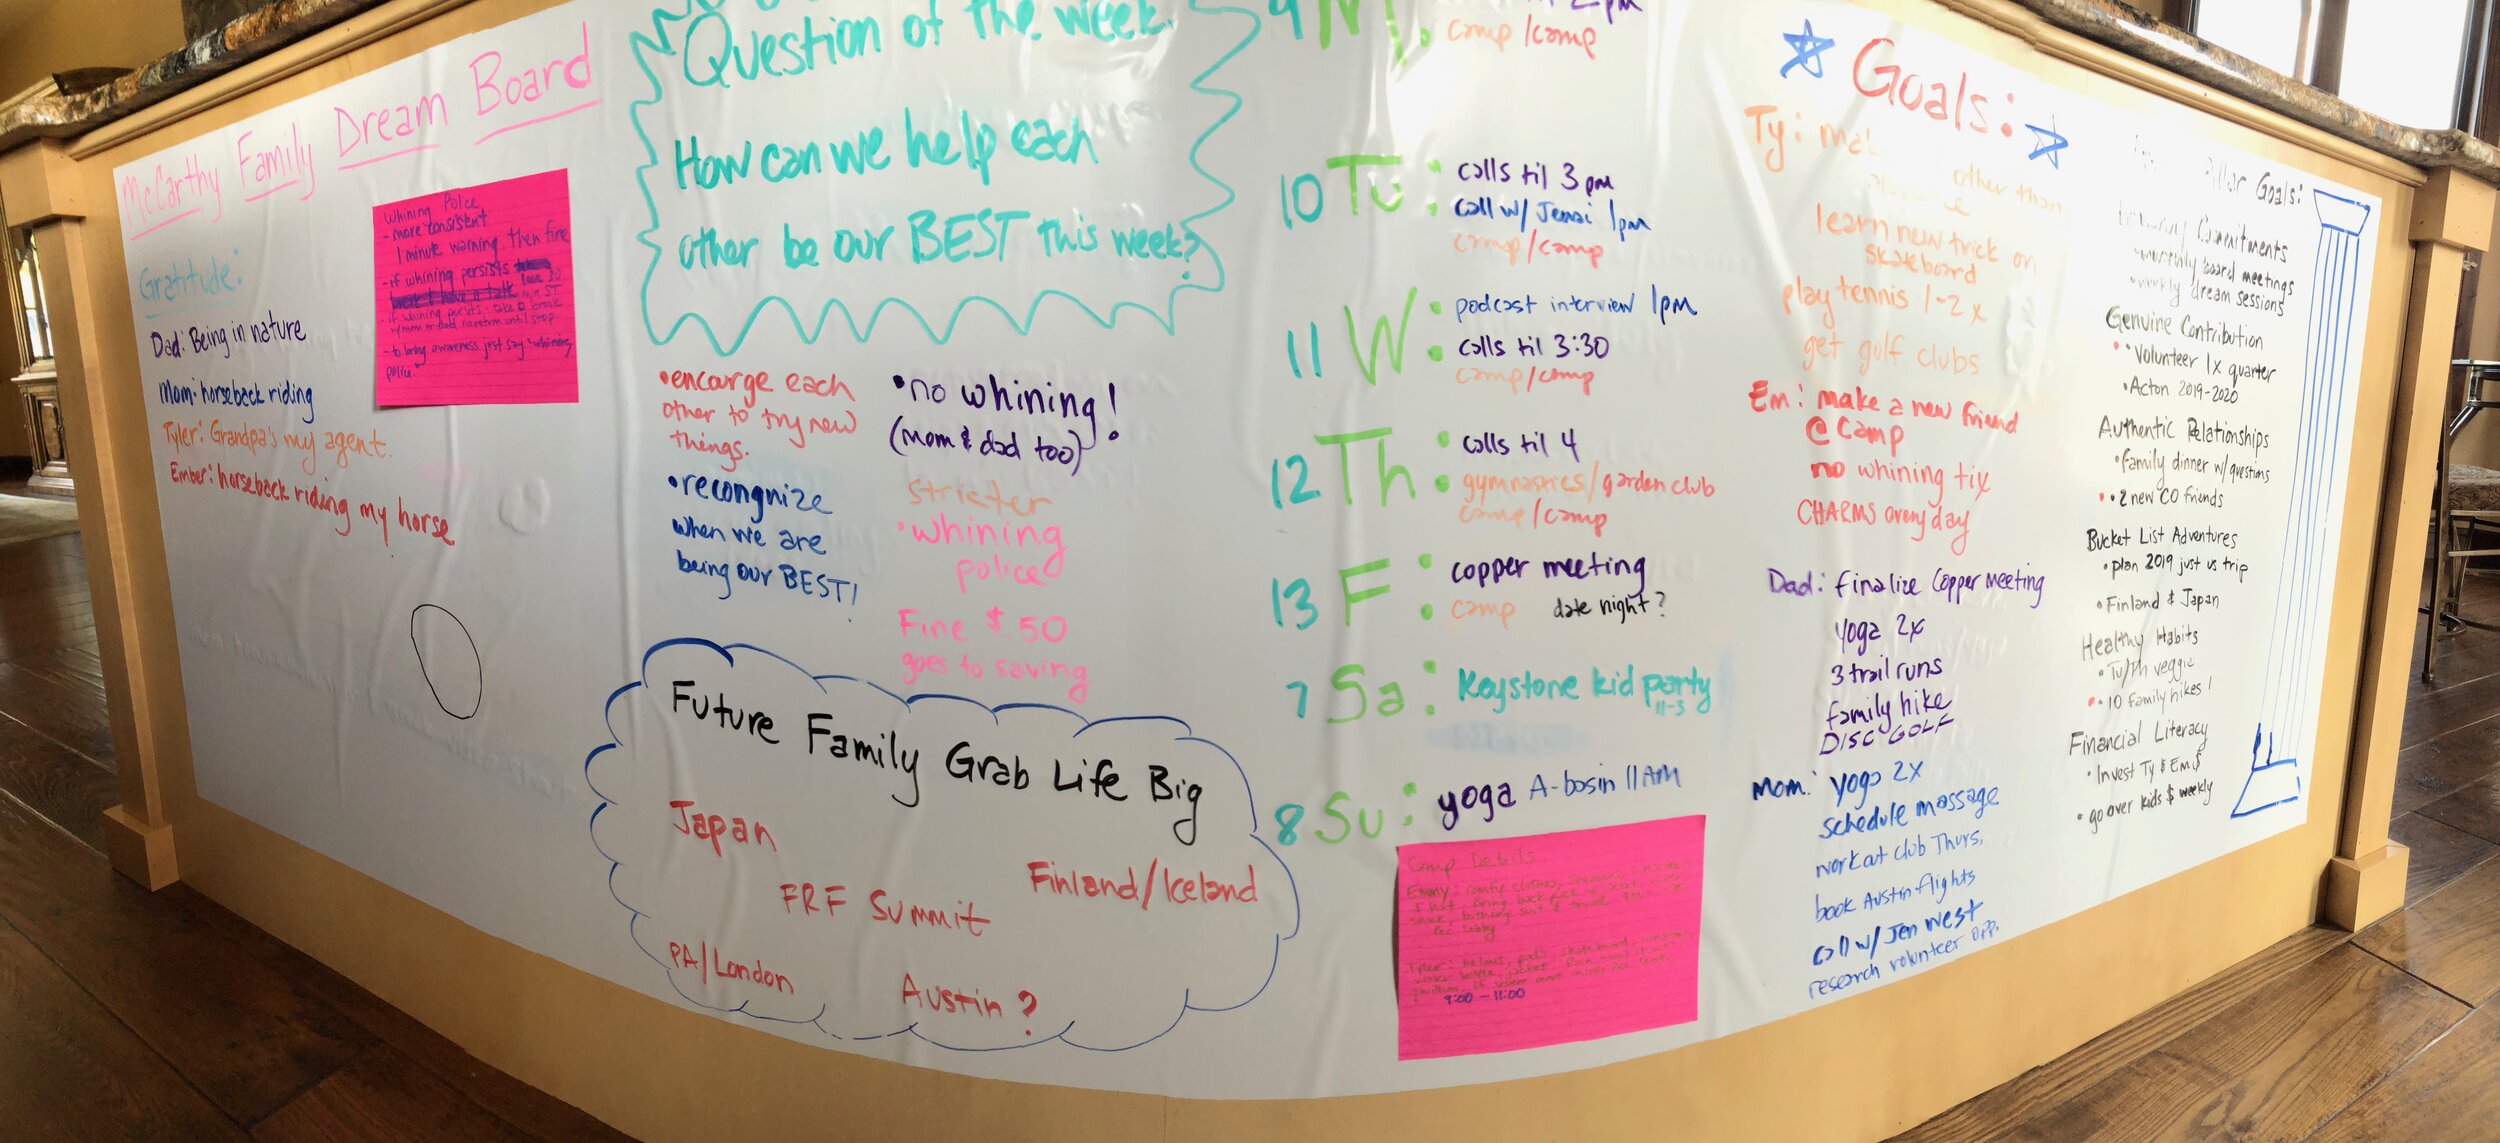 McCarthy Family Dream Board
Gratitude:
Dad: Being in nature
Mom: horseback riding
Tyler: Grandpa's my agent.
Ember: horseback riding my horse
Whining Police
- more consistent
1 minute warning. then fine
- if whining persists lose 30
break & have a talk min ST
- if whining persists - take a break
w/mom or dad no return until stop.
- to bring awareness just say "whining
police."
Question of the week.
How can we help each
other be our BEST this week?
• encourge each
other to try new
things.
• recongnize
when we are
being our BEST!
• no whining!
(mom & dad too)
stricter
• whining
police
Fine $.50
goes to saving
Future Family Grab Life Big
Japan
Finland/Iceland
FRF Summit
PA/London
Austin?
9 M:
2pm
camp/camp
10 Tu: calls til 3pm
call w/ Jenai 1pm
camp/camp
11 W: podcast interview 1pm
calls til 3:30
camp/camp
12 Th: calls til 4
gymnastics/garden club
camp/camp
13 F: copper meeting
camp date night?
7 Sa: Keystone kid party
11-3
8 Su: yoga A-basin 11AM
Camp Details
Emmy: comfy clothes, sunscreen
hat. Bring back pack
snack, bathing suit & towel. 9:00
Rec Lobby
Tyler: helmet, pads, skateboard, sunscreen,
water bottle, jacket.
pavilion. If severe
9:00 - 11:00
Goals:
Ty:
other than
learn new trick on
skateboard
play tennis 1-2x
get golf clubs
Em: make a new friend
@ Camp
no whining tix
CHARMS every day
Dad: finalize Copper Meeting
yoga 2x
3 trail runs
family hike
DISC GOLF
Mom: yoga 2x
schedule massage
workout club Thurs.
book Austin flights
call w/ Jen West
research volunteer opp.
Pillar Goals:
Commitments
• monthly board meetings
• weekly dream sessions
Genuine Contribution
• Volunteer 1x quarter
• Acton 2019-2020
Authentic Relationships
• family dinner w/ questions
• 2 new CO friends
Bucket List Adventures
• plan 2019 just us trip
• Finland & Japan
Healthy Habits
• Tu/Th veggie
• 10 family hikes
Financial Literacy
• Invest Ty & Em $
• go over kids $ weekly